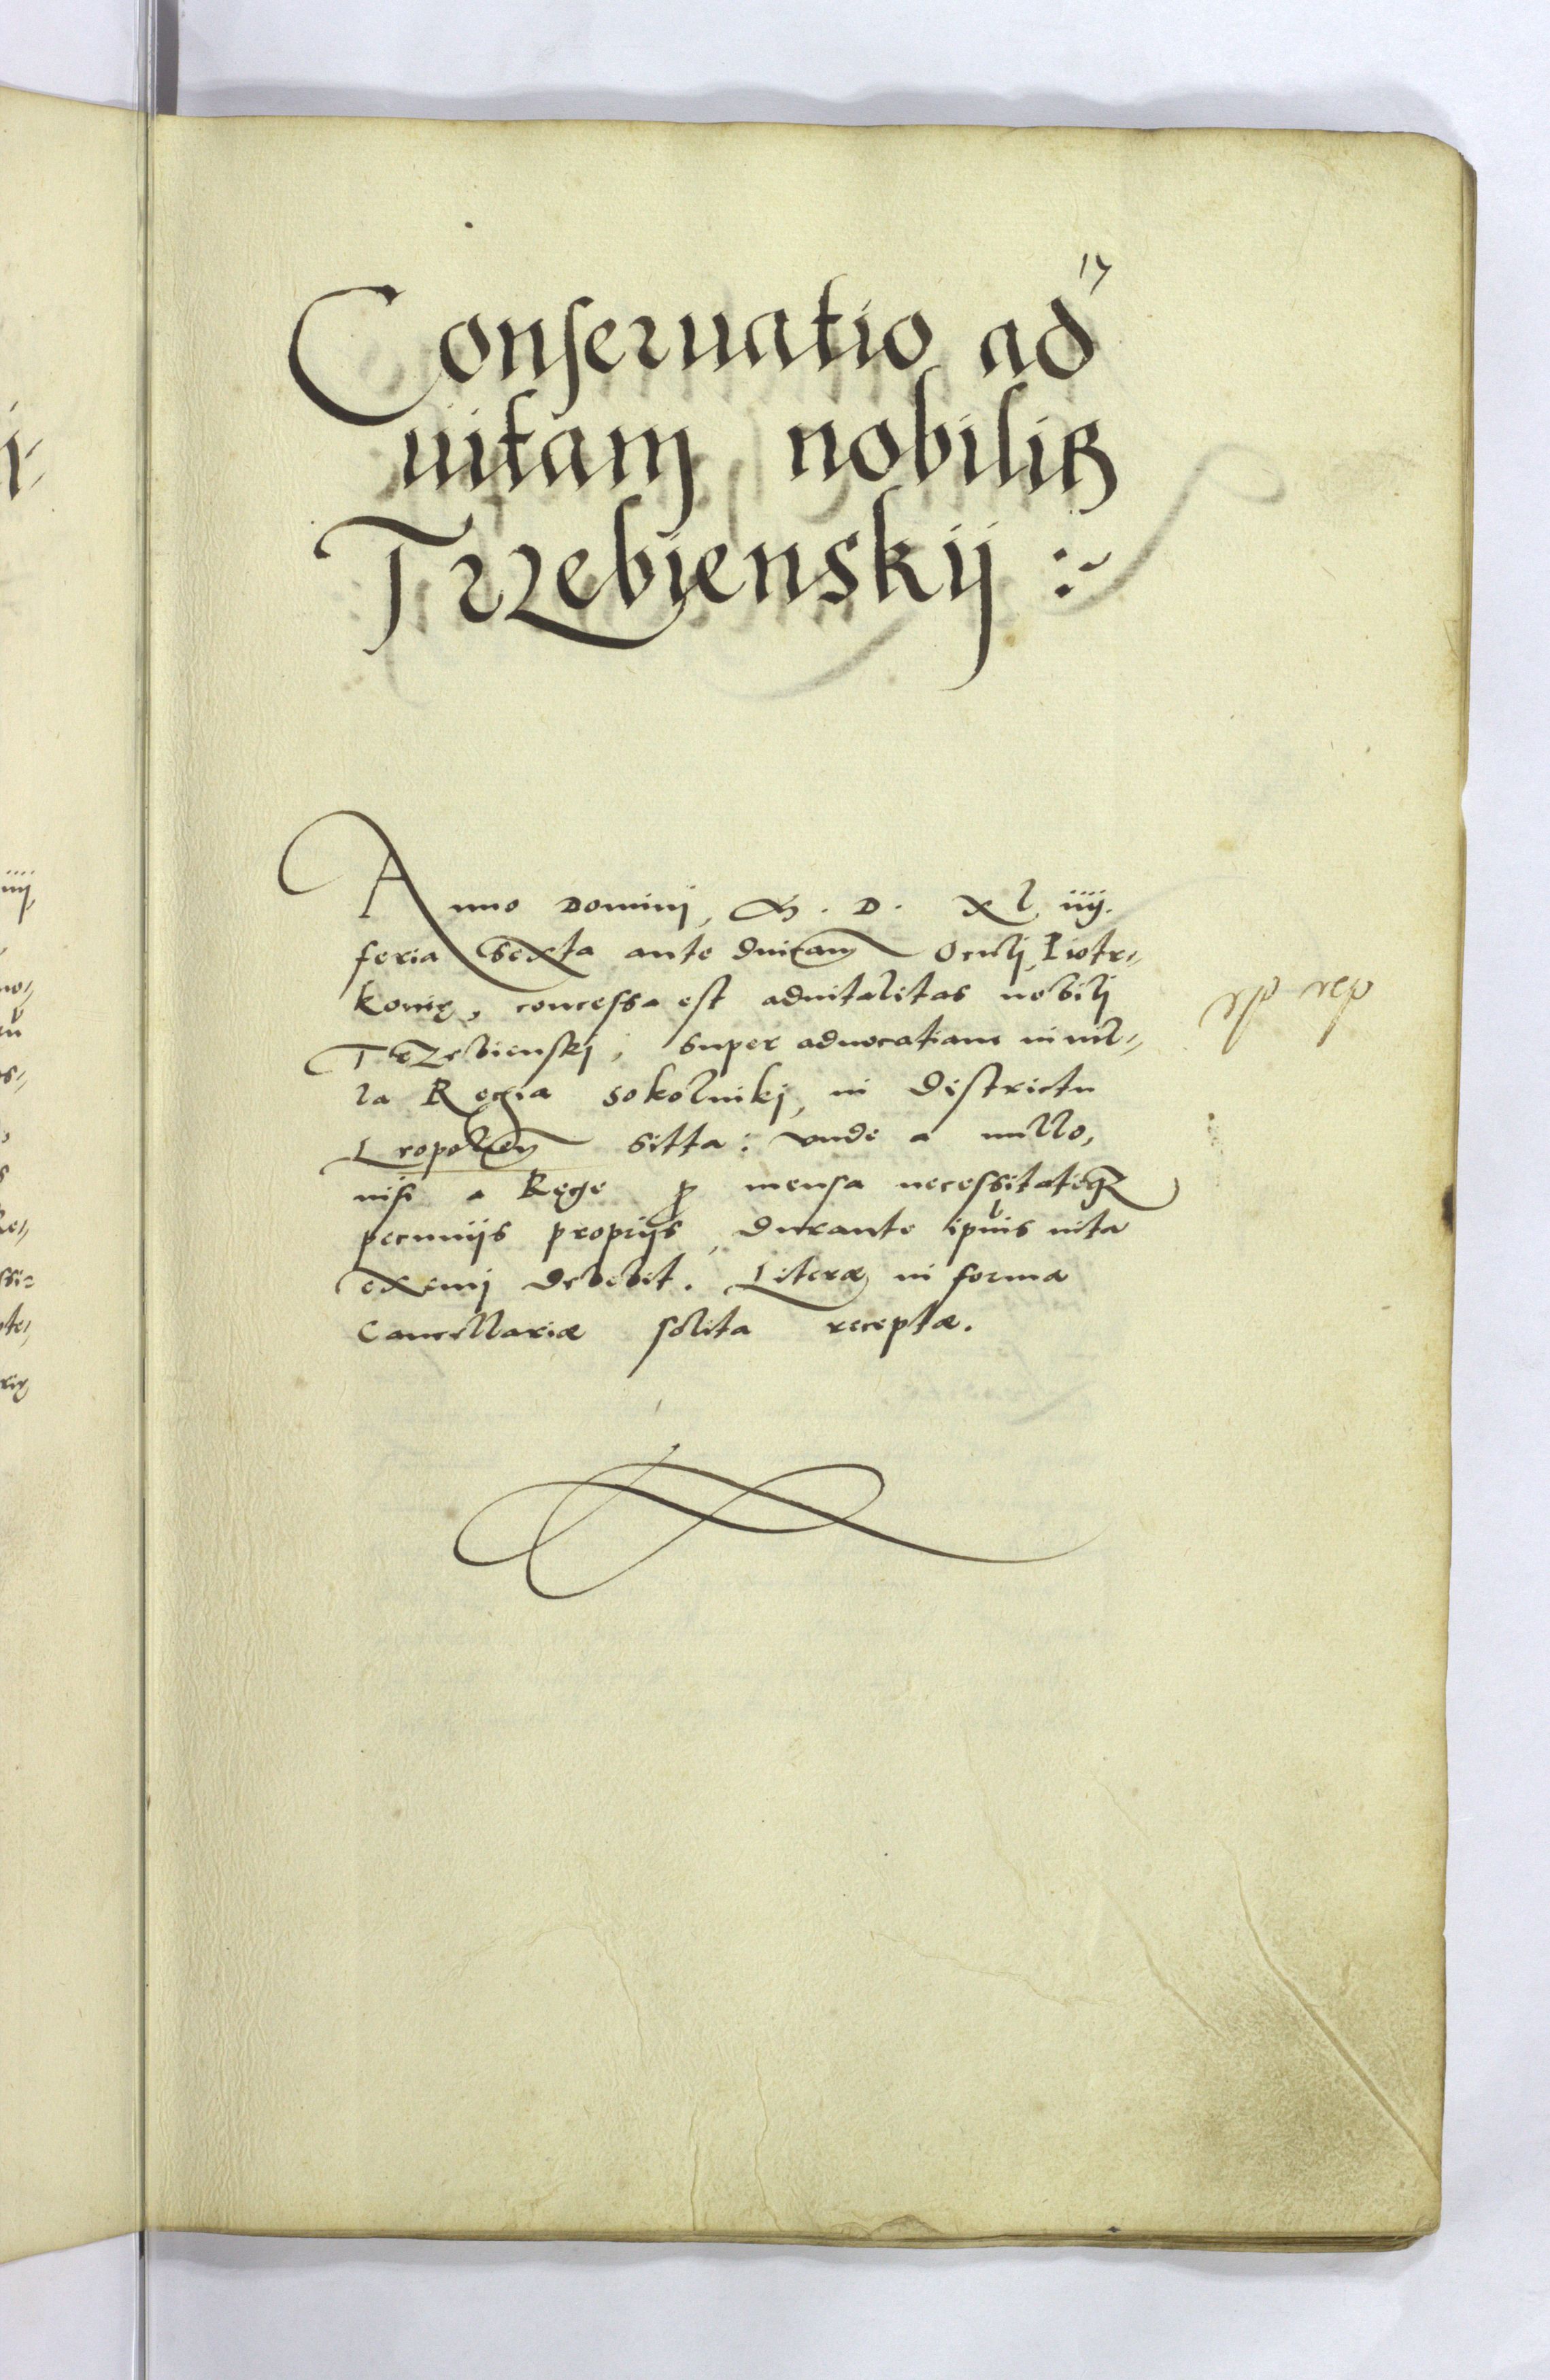 17
Conseruatio ad
uitam nobilis
Trzebienskij :~
Anno Dominj, M. D. XL iiij.
feria Sexta ante dnicam Oculj, Piotr-
kouię, concessa est aduitalitas nobilj
Trzebienskj, super aduocatiam in uil-
la Regia Sokolnikj, in districtu
Leopolien sitta: vnde a nullo,
nisi a Rege p mensa necessitateq3
pecunijs proprijs, durante ipuis uita
eximj debebit. Literæ in forma
Cancellariæ solita receptæ.